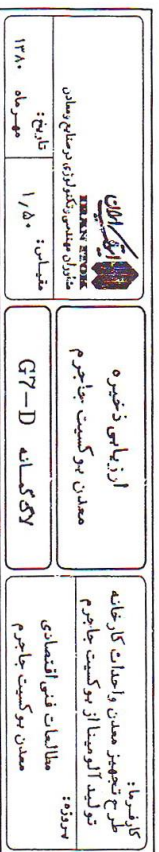 کارفرما:
طرح تجهیز معدن واحداث کارخانه
تولید آلومینا از بوکسیت جاجرم
پروژه:
مطالعات فنی اقتصادی
معدن بوکسیت جاجرم
ارزیابی ذخیره
معدن بوکسیت جاجرم
لاگ گمانه G7-D
ایتوک ایران
IRAN ITOK
مشاوران مهندسی وتکنولوژی در صنایع ومعادن
مقیاس: ۱/۵۰
تاریخ: مهرماه ۱۳۸۰